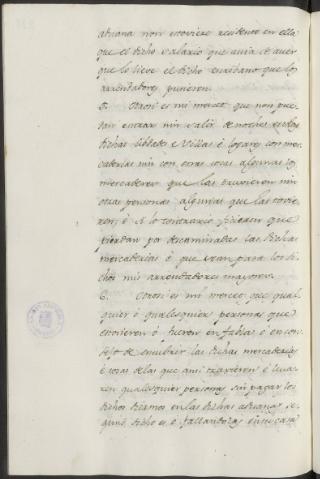 aduana non estoviere residente en ella
que el dicho salario que avia de aver
que lo lieve el dicho escribano que los
arrendadores pusieren.
5. Otrosi es mi merced, que non pue-
dan entrar nin salir de noche en las
dichas cibdades e Villas é logares con mer-
caderias nin con otras cosas algunas los
mercaderes que las truxieren nin
otras personas algunas que las toxie-
ren, é si lo contrario ficieren que
pierdan por descaminadas las dichas
mercaderias é que sean para los di-
chos mis arrendadores mayores.
6. Otrosi es mi merced que qual-
quier ó qualesquier personas que
estovieren ó fueren en fabla é en con-
sejo de encubrir las dichas mercaderias
é cosas de las que ansi truxieren é leva-
ren qualesquier personas sin pagar los
dichos diezmos en las dichas aduanas se-
gund dicho es é fallandolas en su casa